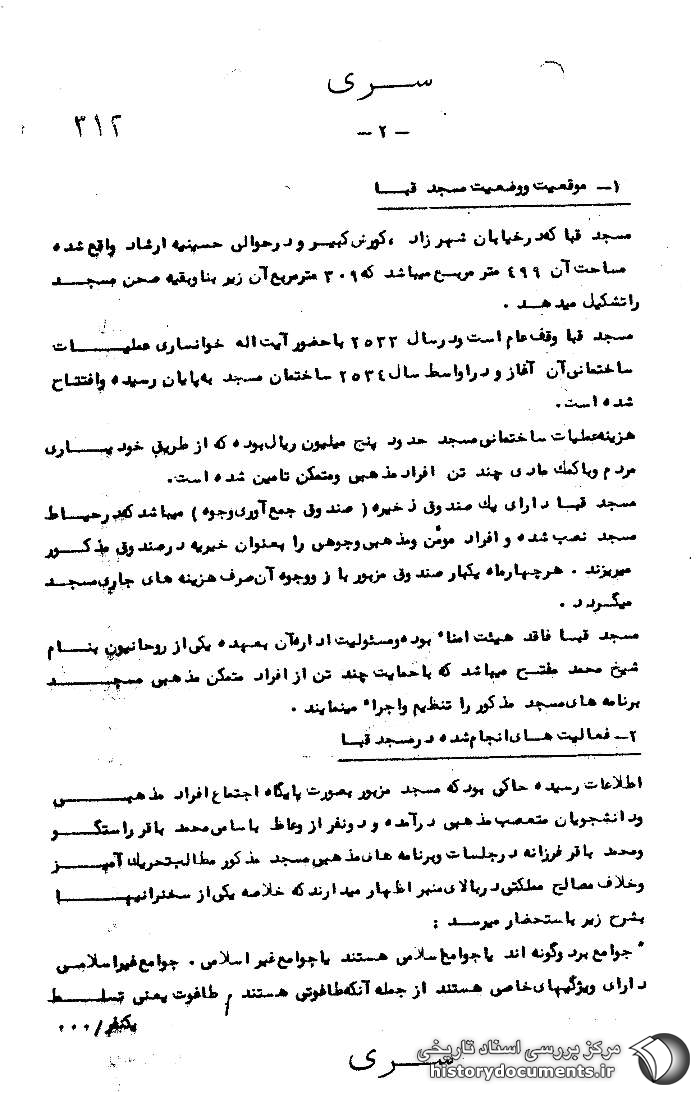 سری
۳۱۲
- ۲ -
۱- موقعیت ووضعیت مسجد قبا
مسجد قبا که درخیابان شهرزاد ، کورش کبیر و درحوالی حسینیه ارشاد واقع شده
مساحت آن ۴۹۹ متر مربع میباشد که ۳۰۹ مترمربع آن زیر بنا وبقیه صحن مسجد
را تشکیل میدهد .
مسجد قبا وقف عام است ودرسال ۲۵۳۳ باحضور آیت اله خوانساری عملیات
ساختمانی آن آغاز و در اواسط سال ۲۵۳۴ ساختمان مسجد به پایان رسیده وافتتاح
شده است .
هزینه عملیات ساختمانی مسجد حدود پنج میلیون ریال بوده که از طریق خودیاری
مردم وباکمک مادی چند تن افراد مذهبی ومتمکن تامین شده است .
مسجد قبا دارای یک صندوق ذخیره ( صندوق جمع آوری وجوه ) میباشد که درحیاط
مسجد نصب شده و افراد مومن ومذهبی وجوهی را بعنوان خیریه درصندوق مذکور
میریزند . هرچهارماه یکبار صندوق مزبور باز ووجوه آن صرف هزینه های جاری مسجد
میگردد .
مسجد قبا فاقد هیئت امناء بوده ومسئولیت اداره آن بعهده یکی از روحانیون بنام
شیخ محمد مفتح میباشد که باحمایت چند تن از افراد متمکن مذهبی مسجد
برنامه های مسجد مذکور را تنظیم واجراء مینمایند .
۲- فعالیت های انجام شده درمسجد قبا
اطلاعات رسیده حاکی بود که مسجد مزبور بصورت پایگاه اجتماع افراد مذهبی
ودانشجویان متعصب مذهبی درآمده و دونفر از وعاظ باسامی محمد باقر راستگو
ومحمد باقر فرزانه درجلسات وبرنامه های مذهبی مسجد مذکور مطالب تحریک آمیز
وخلاف مصالح مملکتی دربالای منبر اظهار میدارند که خلاصه یکی از سخنرانیها
بشرح زیر باستحضار میرسد :
" جوامع بردوگونه اند یا جوامع اسلامی هستند یاجوامع غیر اسلامی . جوامع غیراسلامی
دارای ویژگیهای خاصی هستند از جمله آنکه طاغوتی هستند ، طاغوت یعنی تسلط
یکنفر / ۰۰۰
سری
مرکز بررسی اسناد تاریخی
historydocuments.ir